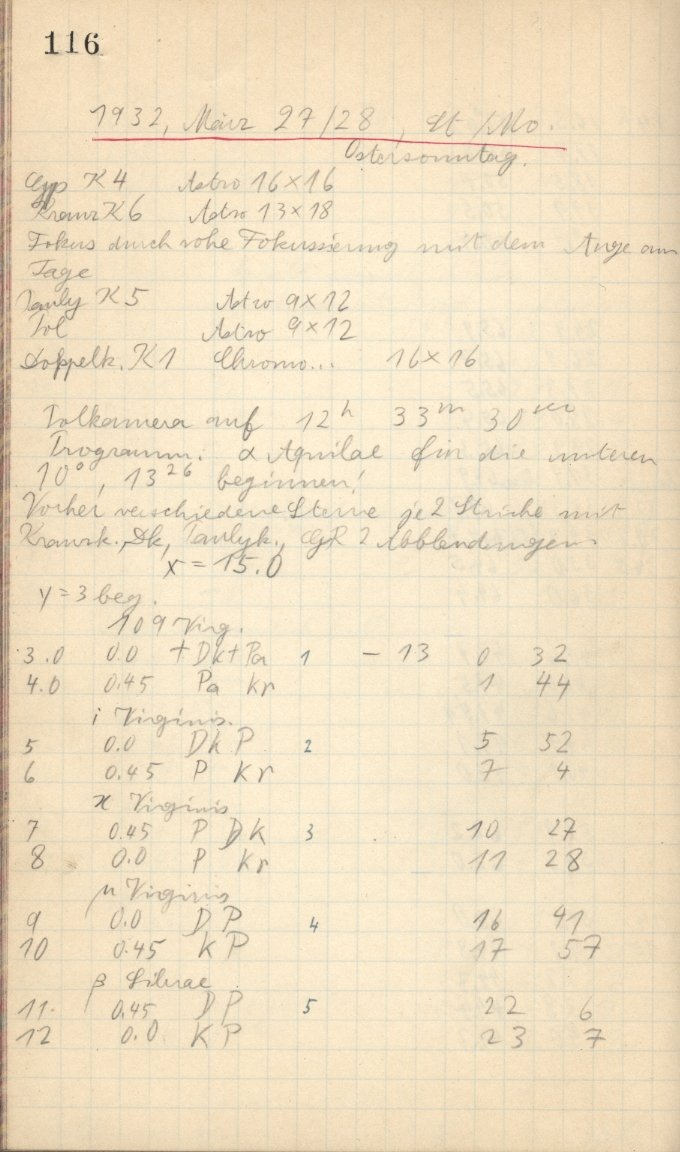 116
1932, März 27/28, St/Mo.
Ostersonntag.
Gyp K4 Astro 16×16
Kranz K6 Astro 13×18
Fokus durch rohe Fokussierung mit dem Auge am
Tage
Pauly K5 Astro 9×12
Pol Astro 9×12
Doppelk. K1 Chromo... 16×16
Polkamera auf 12h 33m 30sec
Programm: α Aquilae für die unteren
10°, 13 26 beginnen!
Vorher verschiedene Sterne je 2 Striche mit
Kranzk., Dk, Paulyk., 2 Abblendungen
x = 15.0
y = 3 beg.
109 Virg.
3.0 0.0 + Dk + Pa 1 – 13 0 32
4.0 0.45 Pa Kr 1 44
i Virginis.
5 0.0 Dk P 2 5 52
6 0.45 P Kr 7 4
ϰ Virginis
7 0.45 P Dk 3 10 27
8 0.0 P Kr 11 28
μ Virginis
9 0.0 D P 4 16 41
10 0.45 K P 17 57
β Librae
11. 0.45 D P 5 22 6
12 0.0 K P 23 7